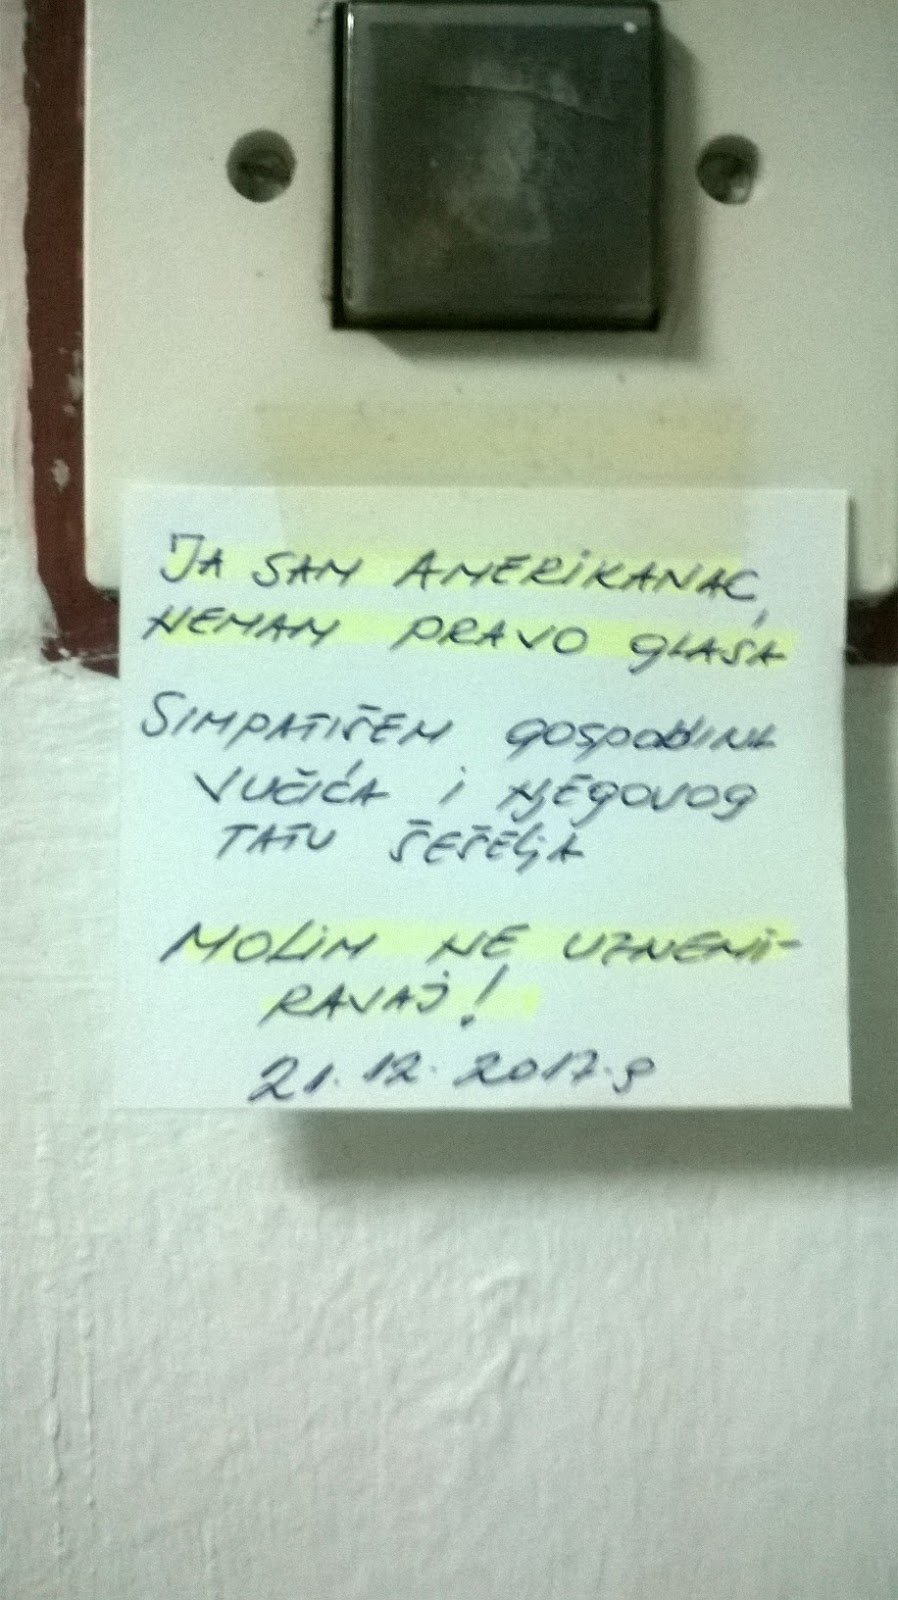 JA SAM AMERIKANAC,
NEMAM PRAVO GLASA
SIMPATIŠEM GOSPODINA
VUČIĆA I NJEGOVOG
TATU ŠEŠELJA
MOLIM NE UZNEMI-
RAVAJ!
21.12.2017.g